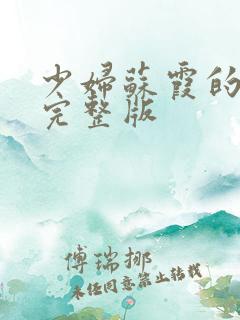 少婦蘇霞的
完整版
傅瑞挪
未任同意禁止转载